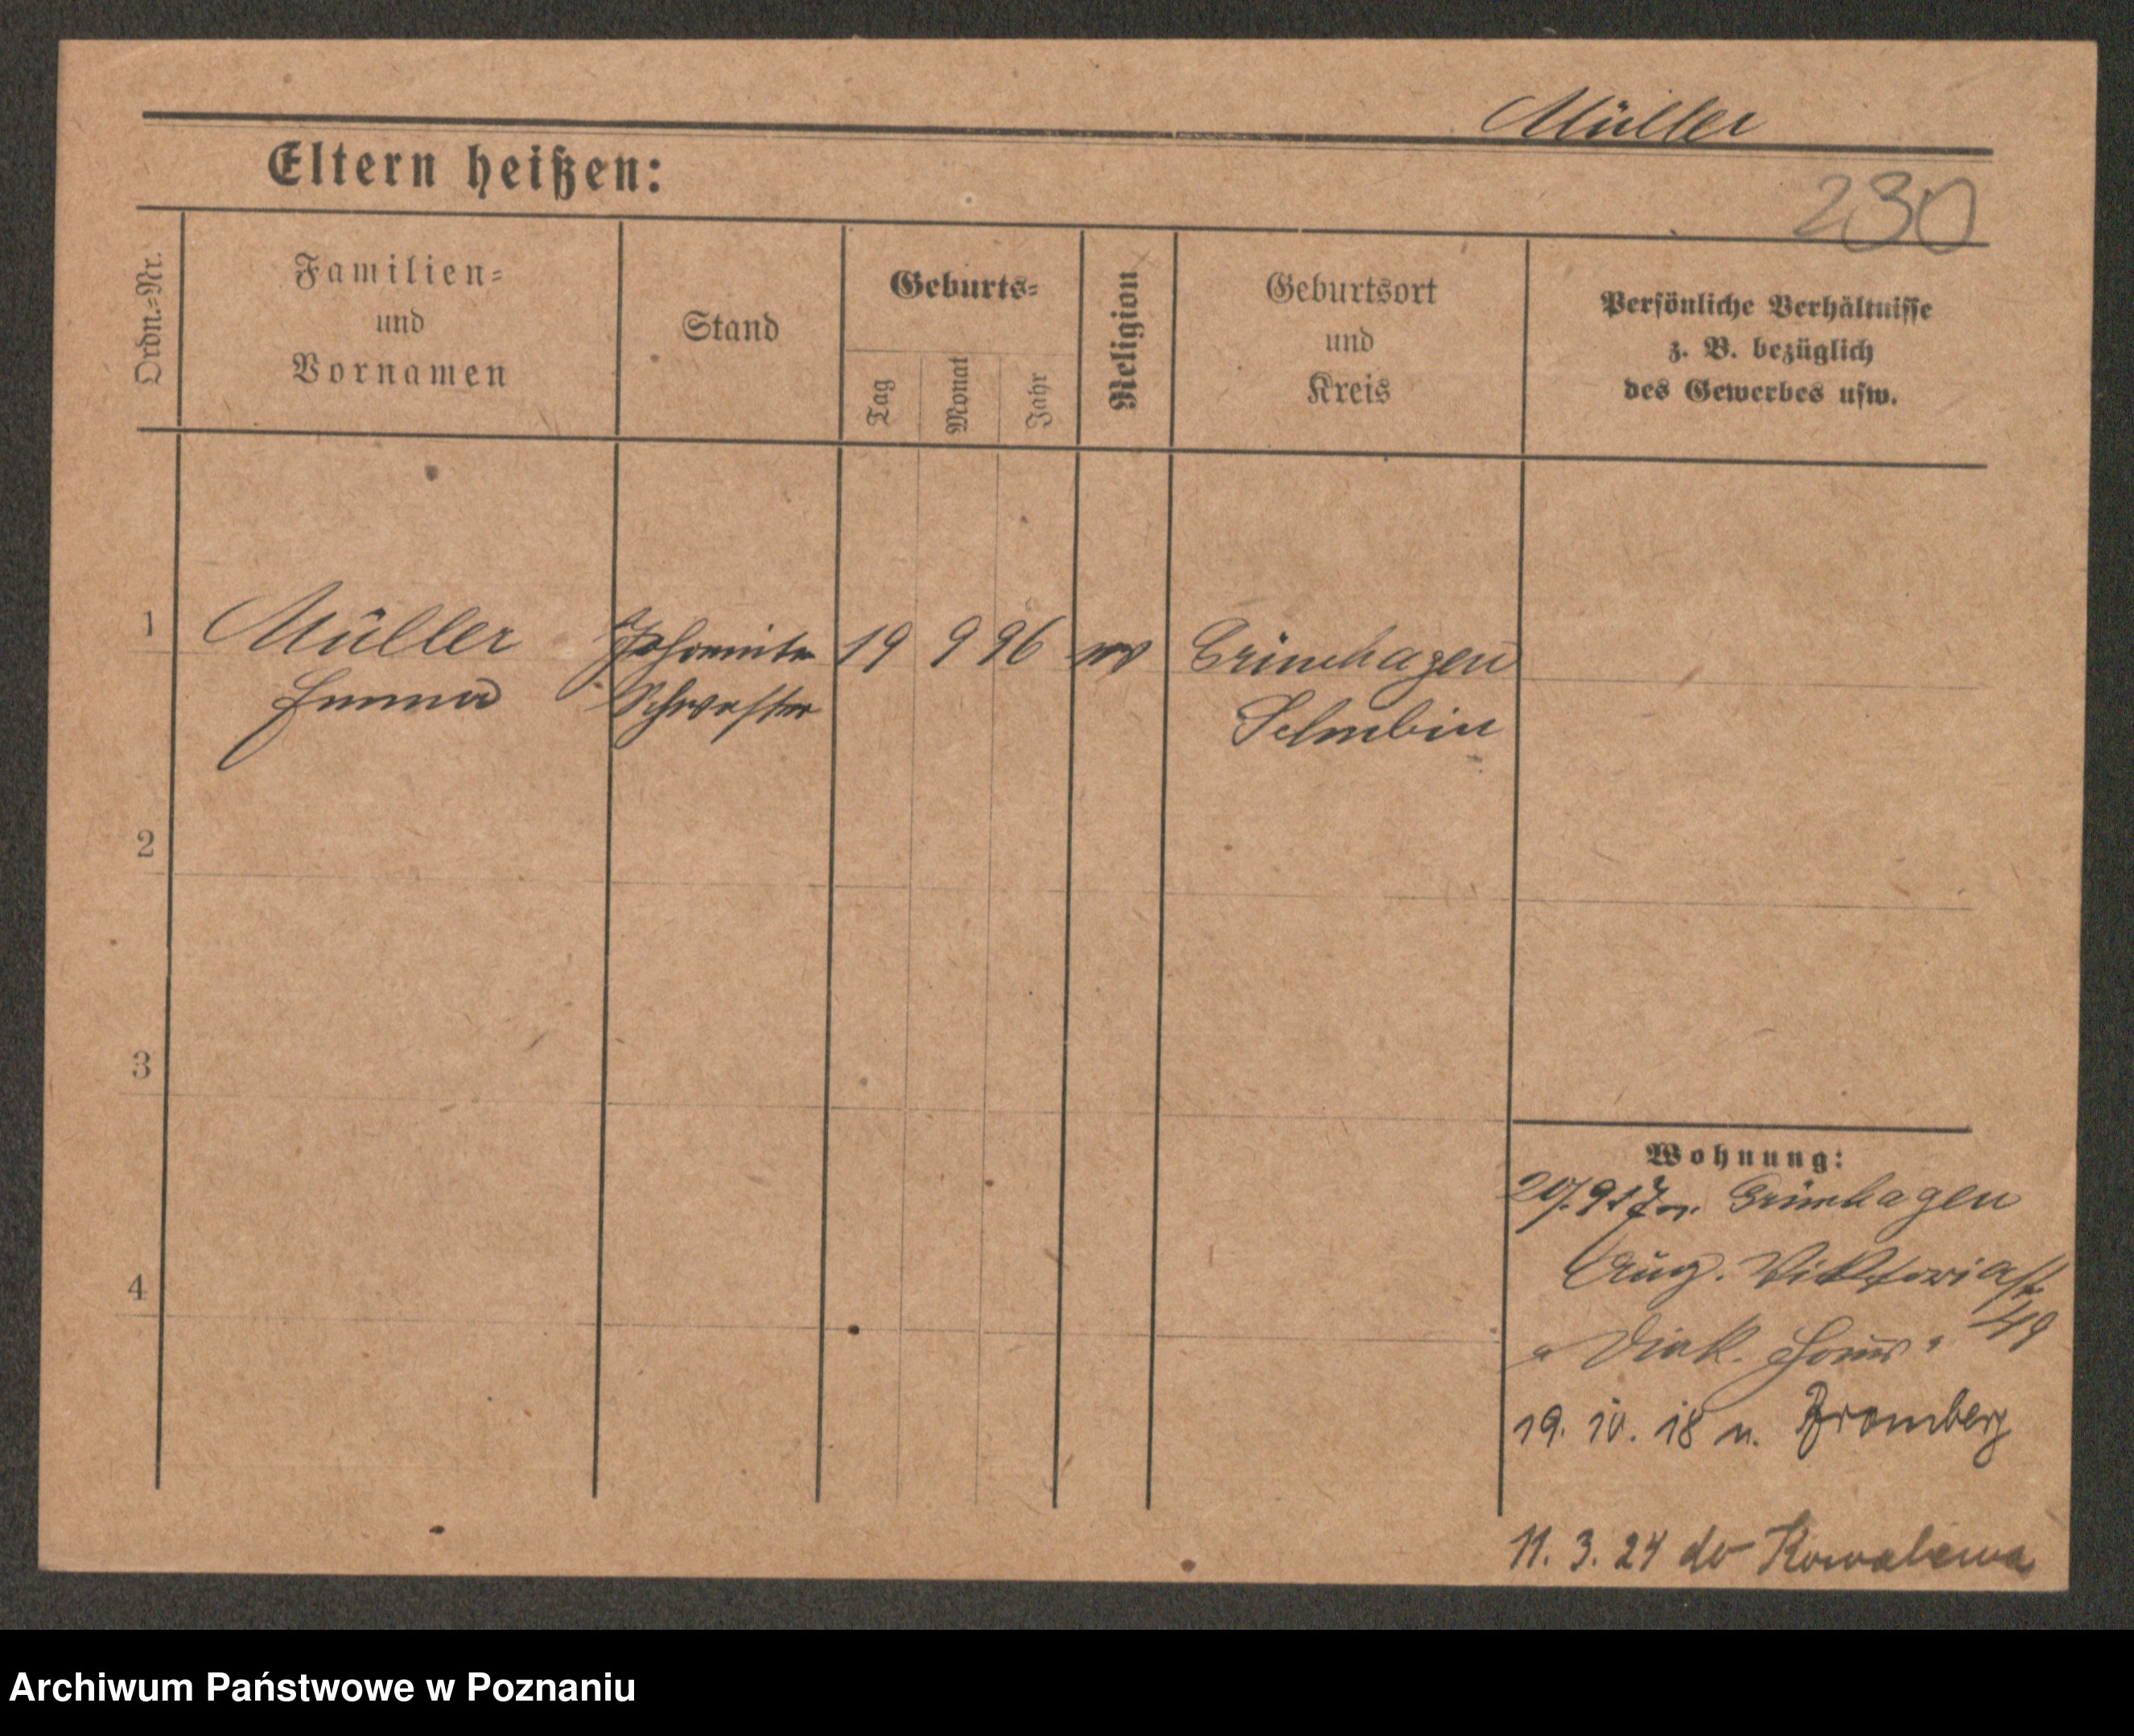 Müller
Eltern heißen:
230
Ordn.=Nr.
Familien=
und
Vornamen
Stand
Geburts=
Tag
Monat
Jahr
Religion
Geburtsort
und
Kreis
Persönliche Verhältnisse
z. B. bezüglich
des Gewerbes usw.
1
Müller
Emma
Johanniter
Schwester
19
9
96
ev
Grünhagen
2
3
4
Wohnung:
Grünhagen
Aug. Viktoriastr
49
Diak. Haus
19. 10. 18 n. Bromberg
11. 3. 24 do Kowalewa
Archiwum Państwowe w Poznaniu